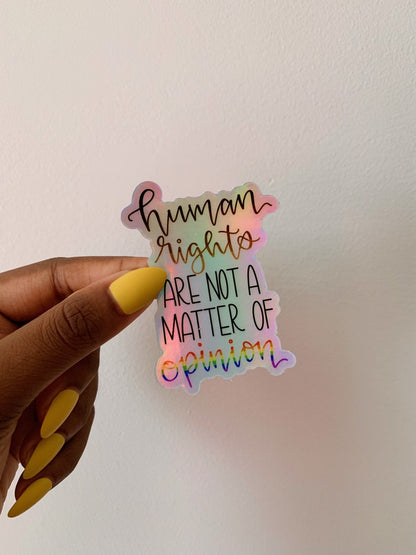 human
rights
ARE NOT A
MATTER OF
opinion